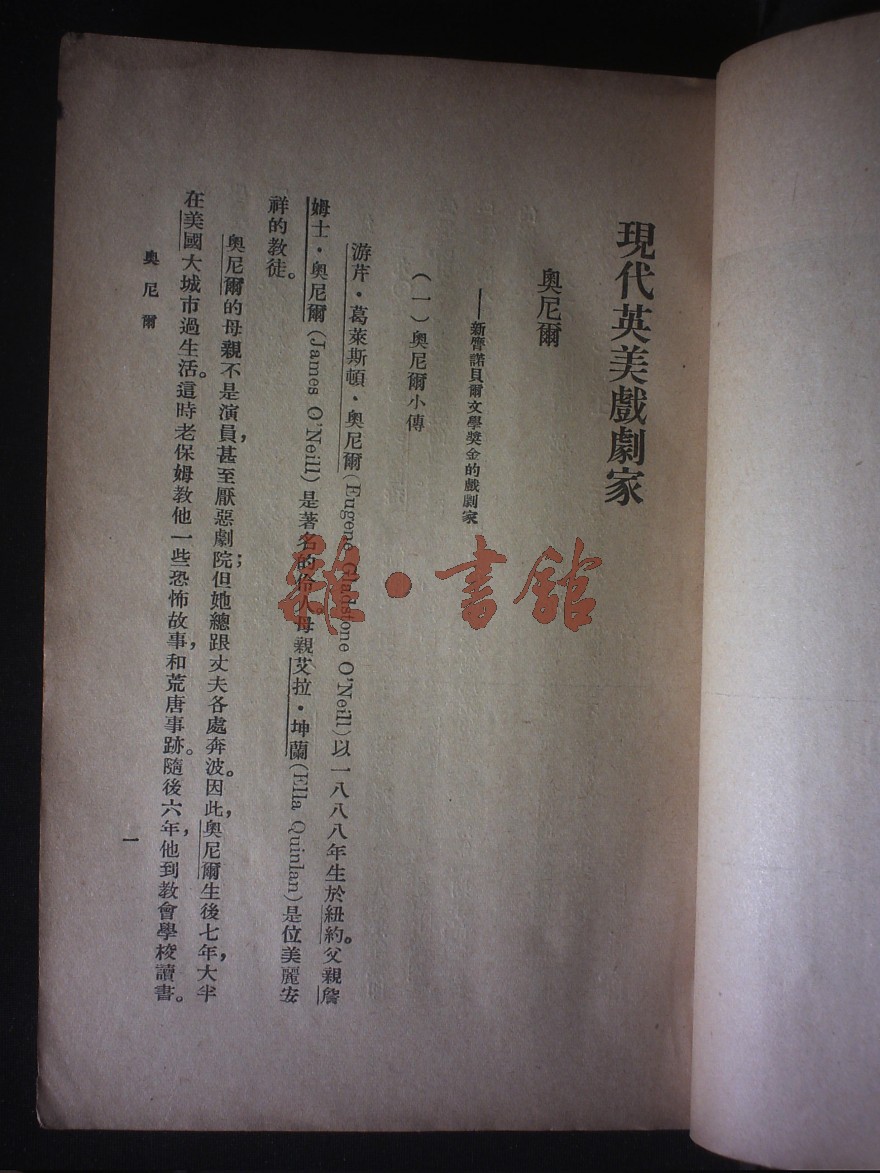 現代英美戲劇家
奧尼爾
——新膺諾貝爾文學獎金的戲劇家
（一）奧尼爾小傳
游芹·葛萊斯頓·奧尼爾(Eugene Gladstone O'Neill)以一八八八年生於紐約。父親詹
姆士·奧尼爾(James O'Neill)是著名的伶人母親艾拉·坤蘭(Ella Quinlan)是位美麗安
祥的教徒。
奧尼爾的母親不是演員，甚至厭惡劇院；但她總跟丈夫各處奔波。因此，奧尼爾生後七年，大半
在美國大城市過生活。這時老保姆教他一些恐怖故事，和荒唐事跡。隨後六年，他到教會學校讀書。
奧尼爾
一
雜·書館